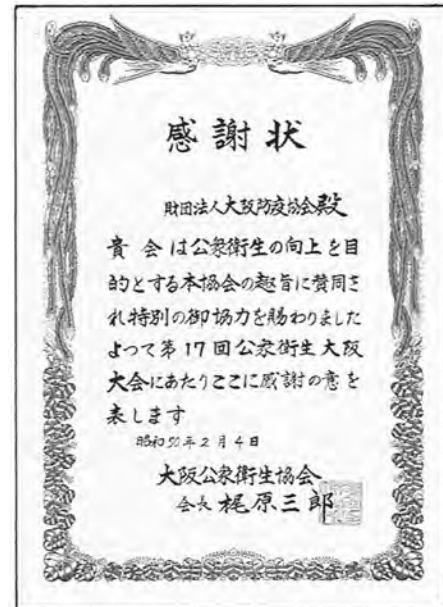 感謝状
財団法人大阪防疫協会殿
貴会は公衆衛生の向上を目
的とする本協会の趣旨に賛同さ
れ特別の御協力を賜わりました
よって第17回公衆衛生大阪
大会にあたりここに感謝の意を
表します
昭和50年2月4日
大阪公衆衛生協会
会長 梶原三郎